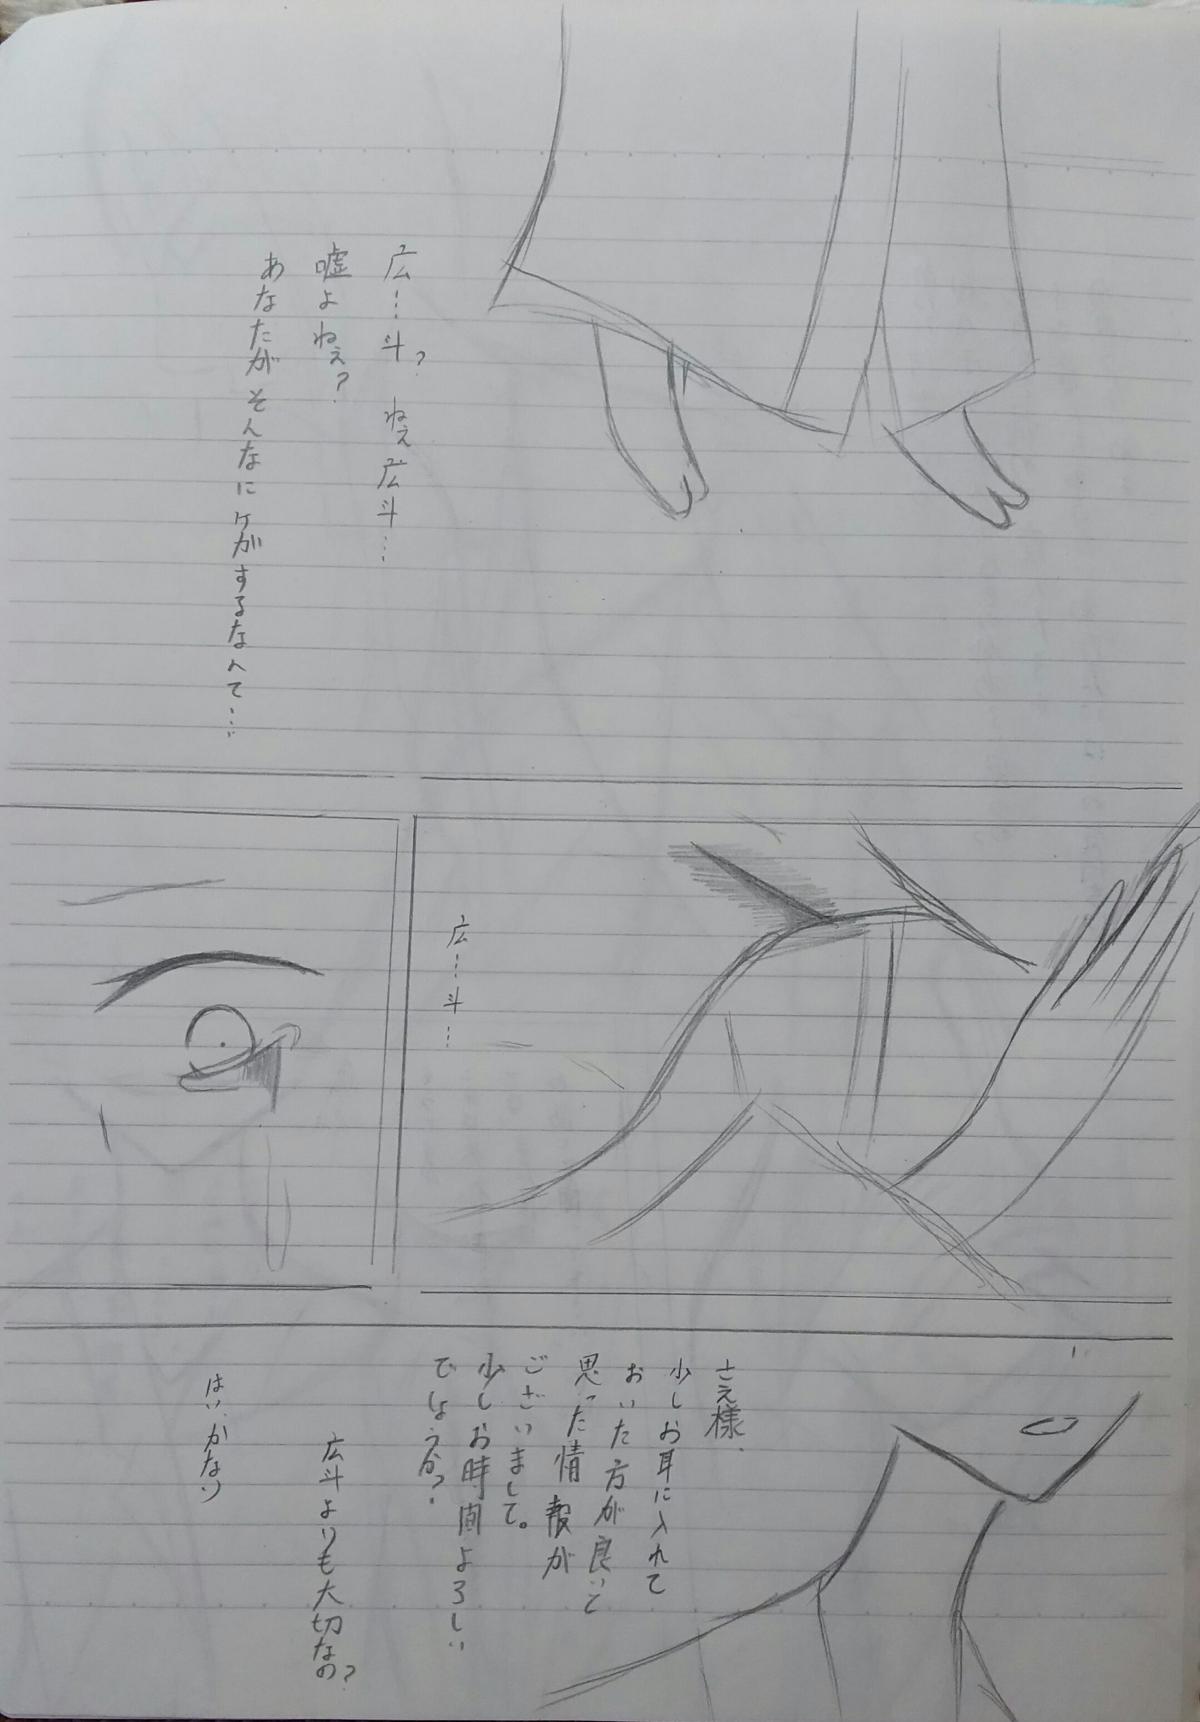 広…斗？ ねぇ広斗…
嘘よねぇ？
あなたがそんなにケガするなんて…
広…斗…
さえ様、
少しお耳に入れて
おいた方が良いと
思った情報が
ございまして。
少しお時間よろしい
でしょうか？
広斗よりも大切なの？
はい、かなり